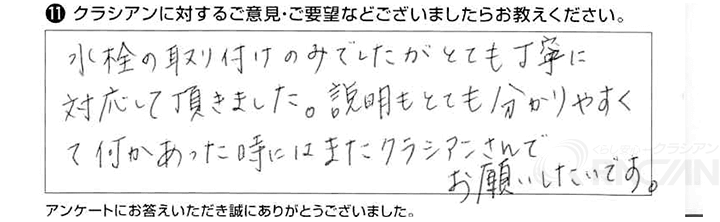 ⑪ クラシアンに対するご意見・ご要望などございましたらお教えください。
水栓の取り付けのみでしたがとても丁寧に
対応して頂きました。説明もとても分かりやすく
て何かあった時にはまたクラシアンさんで
お願いしたいです。
アンケートにお答えいただき誠にありがとうございました。
くらし安心クラシアン